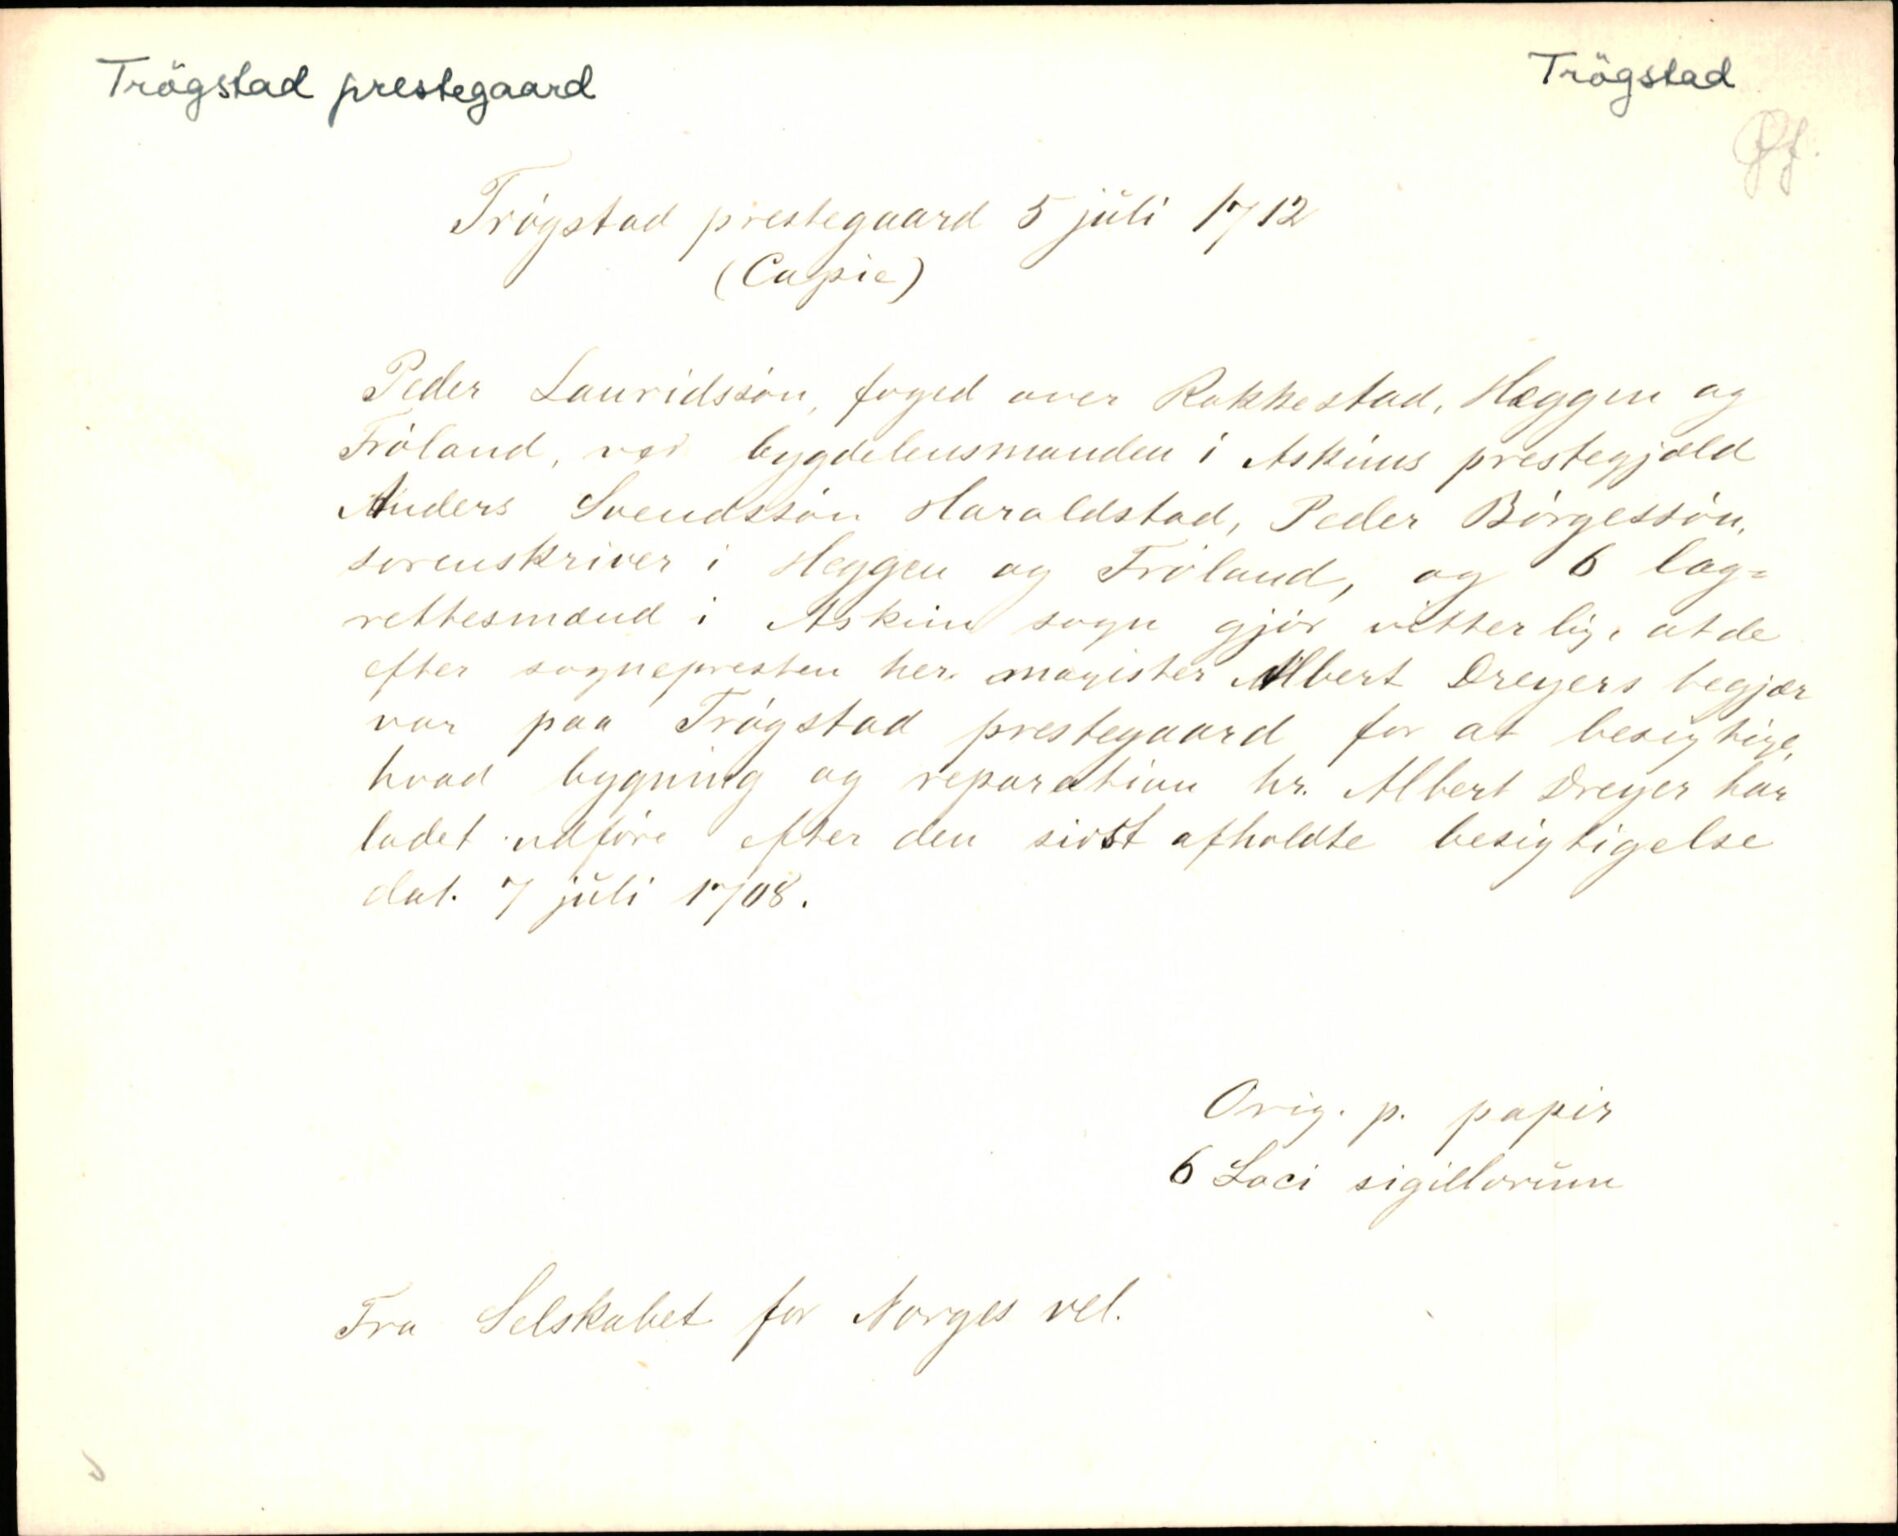 Trögstad prestegaard
Trögstad
Øf.
Trögstad prestegaard 5 juli 1712
(Copie)
Peder Lauridssön, foged over Rakkestad, Heggen og
Fröland, ved bygdelensmanden i Askims prestegjæld
Anders Svendssön Haraldstad, Peder Börgessön,
sorenskriver i Heggen og Fröland, og 6 lag=
rettesmænd i Askim sogn gjör vitterlig, at de
efter sognepresten her. magister Albert Dreyers begjær
var paa Trögstad prestegaard for at besigtige,
hvad bygning og reparation hr. Albert Dreyer har
ladet udföre efter den sidst afholdte besigtigelse
dat. 7 juli 1708.
Orig. p. papir
6 Loci sigillorum
Fra Selskabet for Norges vel.